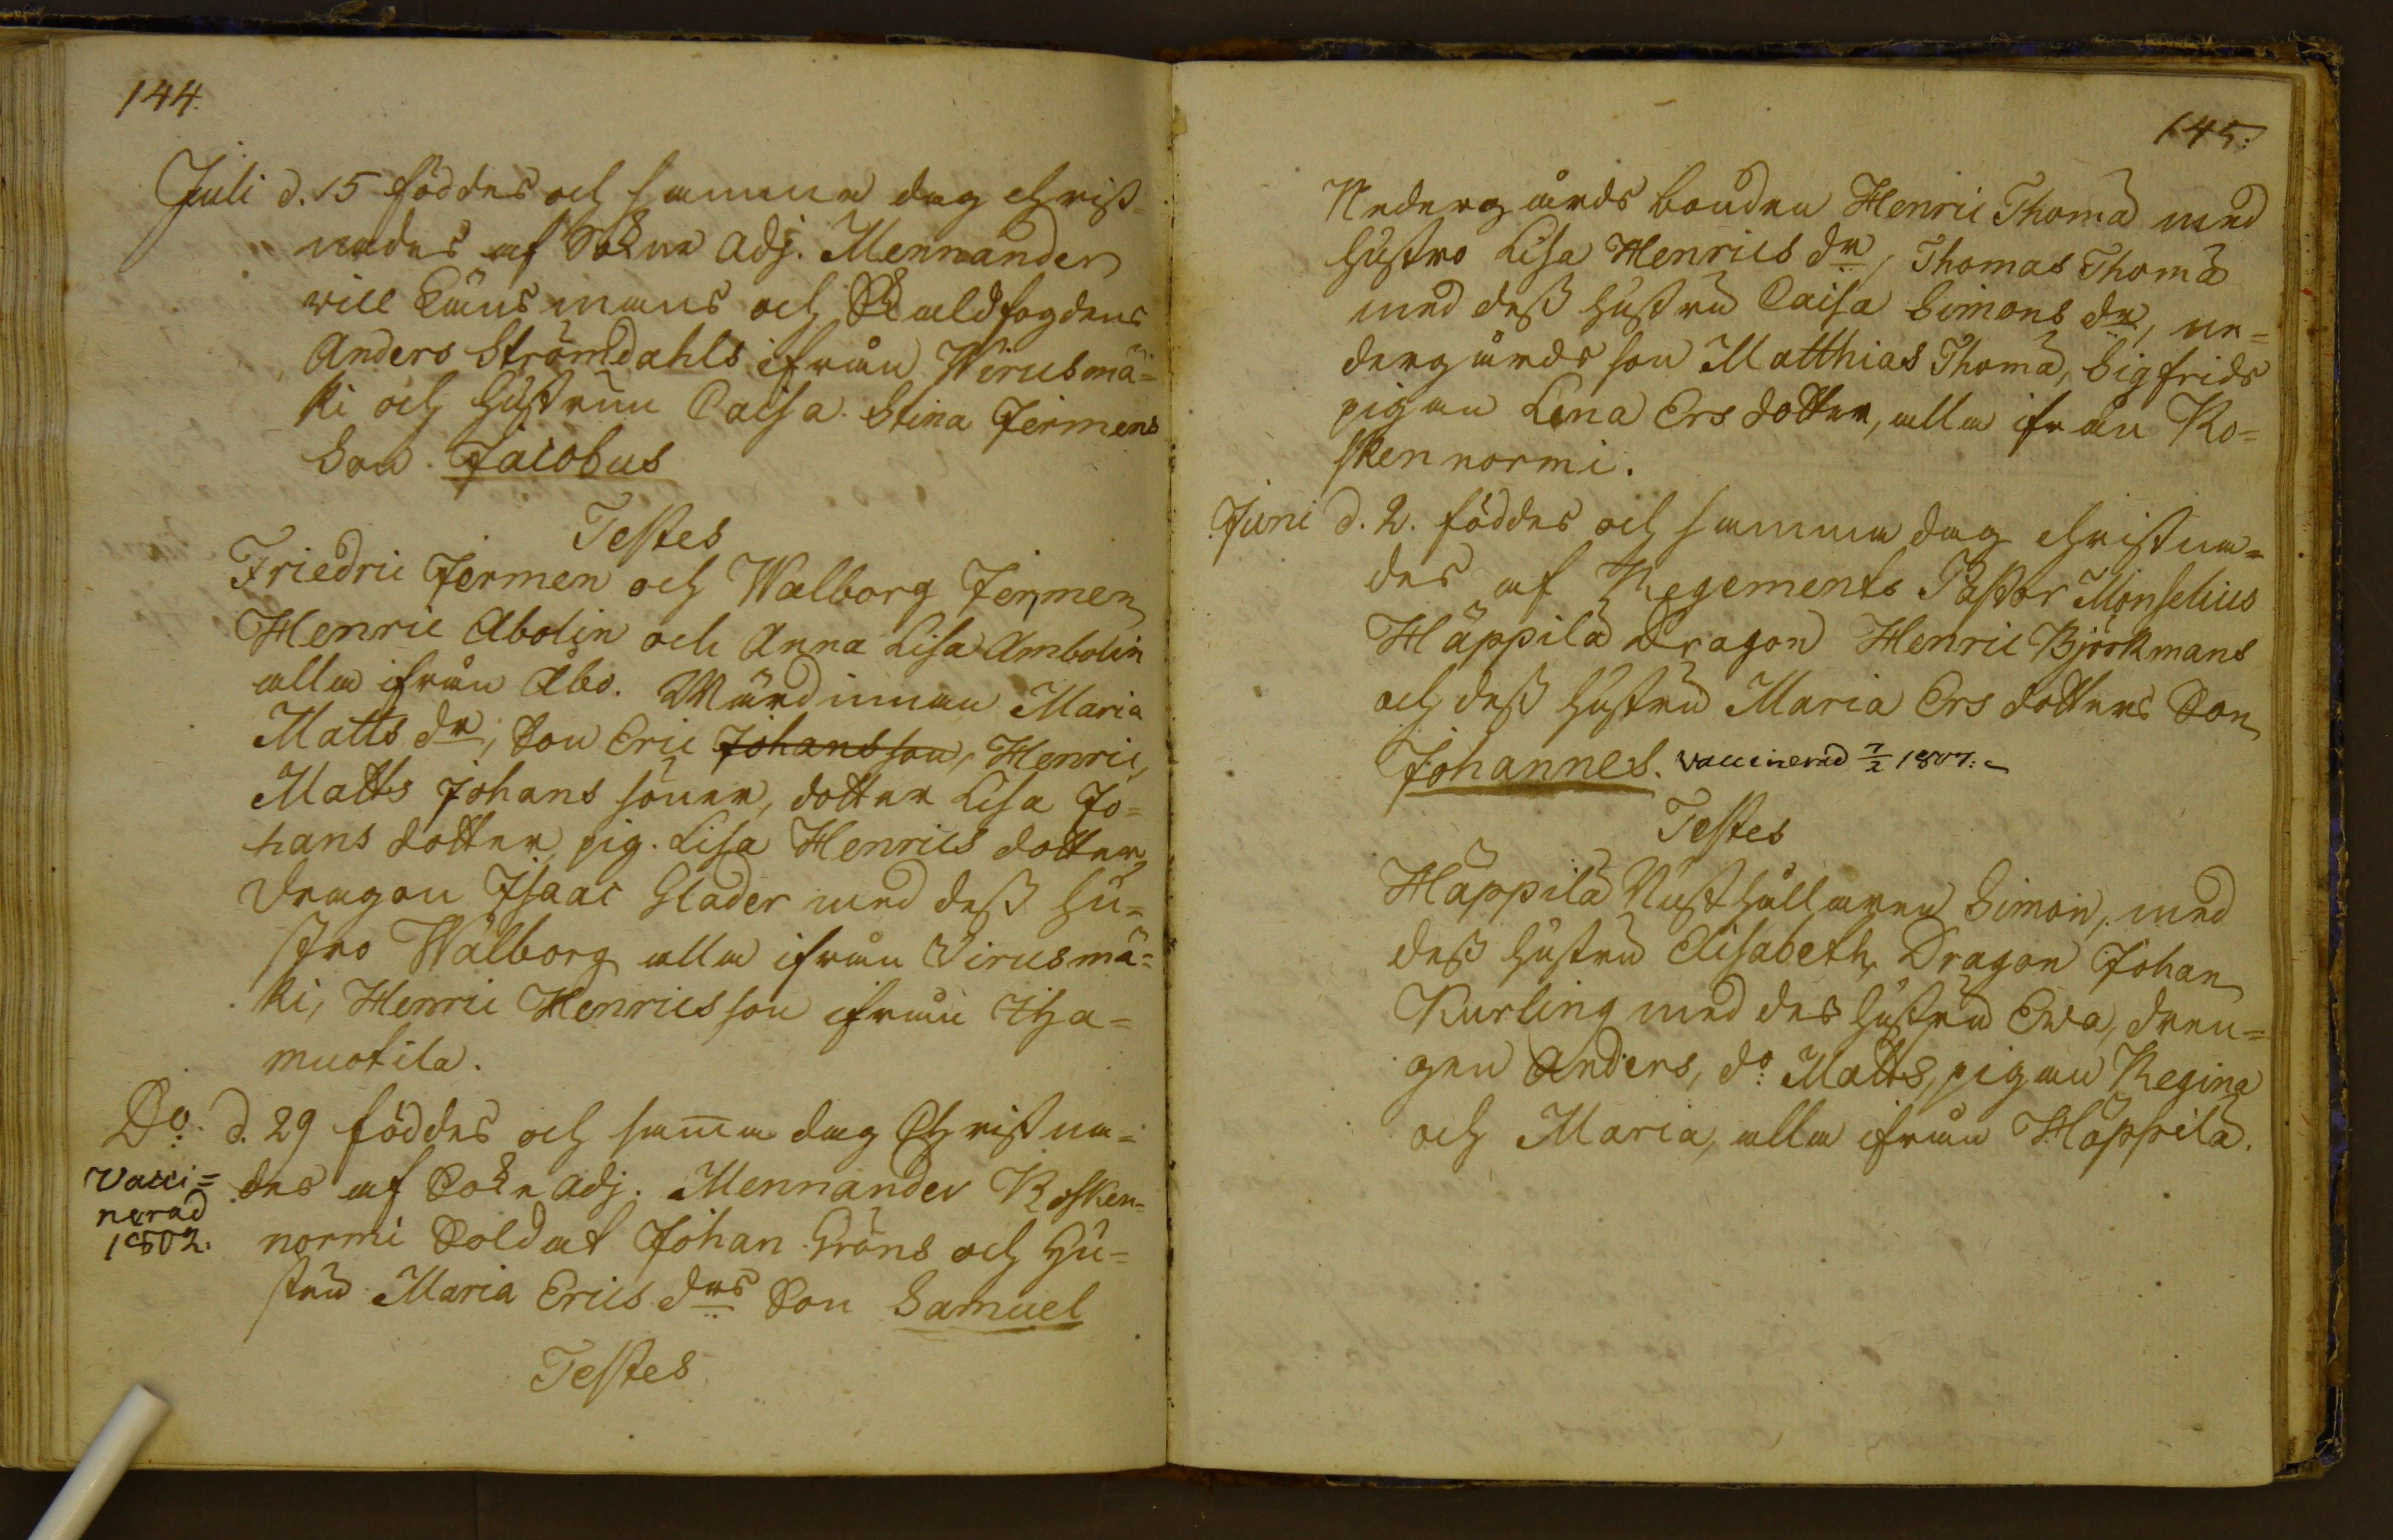 144.
Juli d. 15 föddes och samma dag christ=
nades af Sokne Adj. Mennander
vice Länsmans och fogdens
Anders Strömdahls ifrån Wirusmä=
ki och Hustrun Caisa Stina Jermens
Son Jacobus
Testes
Friedric Jermen och Walborg Jermen
Henric Abolin och Anna Lisa Ambolin
alla ifrån Åbo. Wärdinnan Maria
Matts dr, Son Eric Johansson, Henric,
Matts Johans söner, dotter Lisa Jo=
hans dotter, pig. Lisa Henrics dotter,
Dragon Isaac Glader med dess Hu=
stro Walborg alla ifrån Virusmä=
ki, Henric Henricsson ifrån Iha=
muotila.
Do. d. 29 föddes och samma dag Christna=
Vacci=
nerad
1802.
des af Sokne Adj. Mennander Kosken=
normi Soldat Johan Gröns och Hu=
stru Maria Erics drs Son Samuel
Testes
145.
Nedergårds bonden Henric Thomæ med
Hustro Lisa Henrics dr, Thomas Thomæ
med dess Hustru Caisa Simons dr, ne=
dergårds son Matthias Thomæ, Sigfrids
pigan Lena Ersdotter, alla ifrån Ko=
skennormi.
Juni d. 2. föddes och samma dag christna=
des af Regements Pastor Monselius
Häppilä Dragon Henric Björkmans
och dess Hustru Maria Ersdotters Son
Johannes. Vaccinerad 7/2 1807.
Testes
Häppilä Rusthållaren Simon, med
dess Hustru Elisabeth, Dragon Johan
Kurling med des Hustru Ewa, dren=
gen Anders, do. Matts, pigan Regina
och Maria, alla ifrån Häppilä.